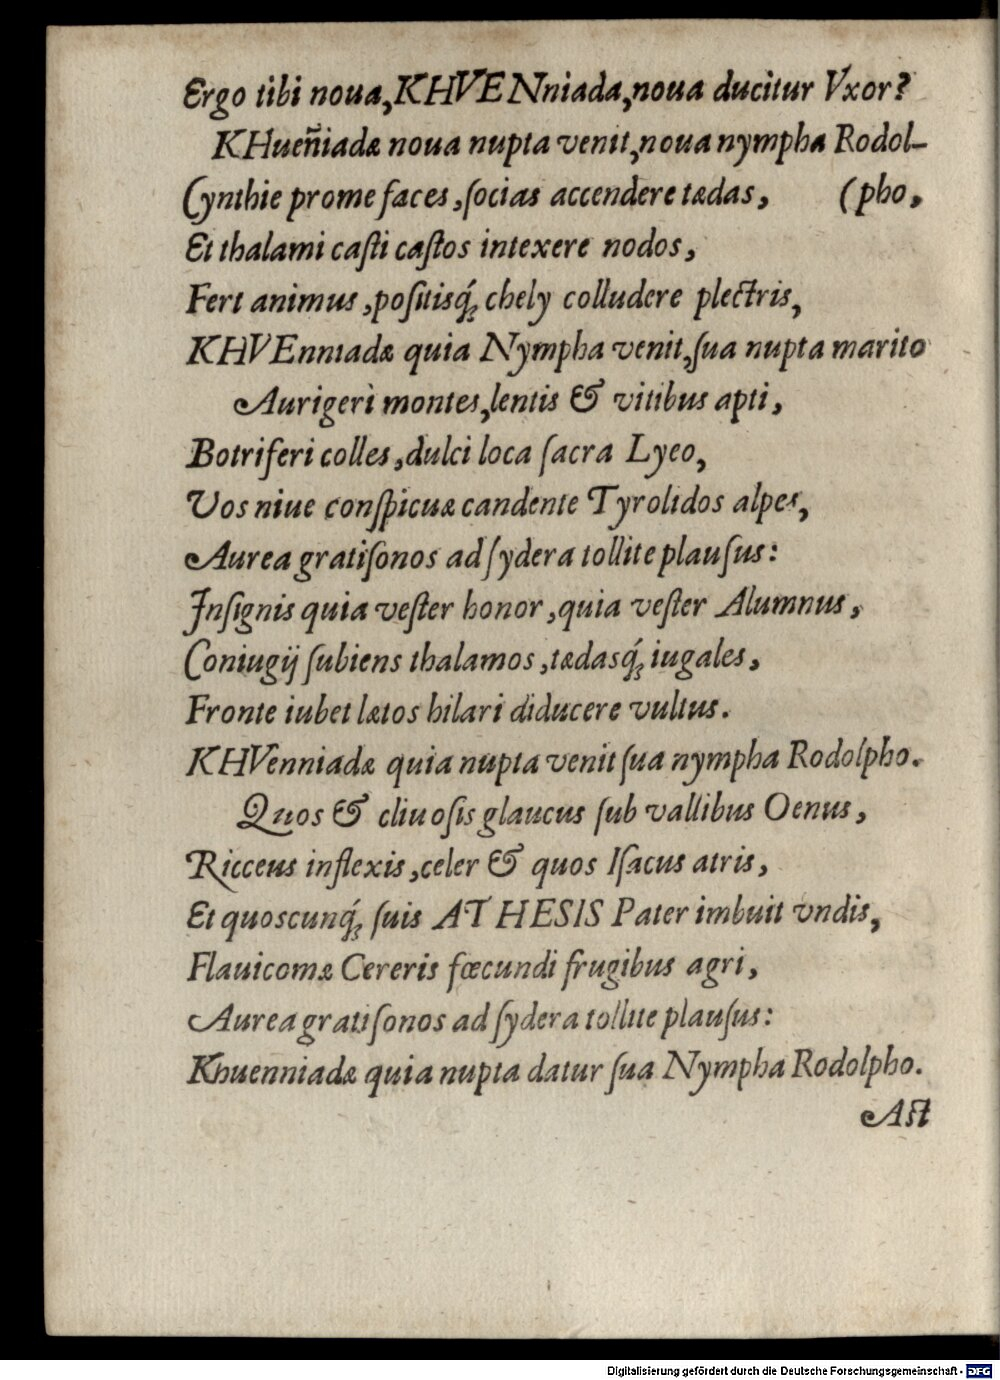 Ergo tibi noua, KHVENniada, noua ducitur Vxor?
KHueñiadæ noua nupta venit, noua nympha Rodol-
Cynthie prome faces, ſocias accendere tædas, (pho,
Et thalami caſti caſtos intexere nodos,
Fert animus, poſitisq́ꝫ chely colludere plectris,
KHVEnniadæ quia Nympha venit, ſua nupta marito
Aurigeri montes, lentis & vitibus apti,
Botriferi colles, dulci loca ſacra Lyeo,
Vos niue conſpicuæ candente Tyrolidos alpes,
Aurea gratiſonos ad ſydera tollite plauſus:
Inſignis quia veſter honor, quia veſter Alumnus,
Coniugij ſubiens thalamos, tædasq́ꝫ iugales,
Fronte iubet lætos hilari diducere vultus.
KHVenniadæ quia nupta venit ſua nympha Rodolpho.
Quos & cliuoſis glaucus ſub vallibus Oenus,
Ricceus inflexis, celer & quos Iſacus atris,
Et quoscunq́ꝫ ſuis ATHESIS Pater imbuit vndis,
Flauicomæ Cereris fœcundi frugibus agri,
Aurea gratiſonos ad ſydera tollite plauſus:
Khuenniadæ quia nupta datur ſua Nympha Rodolpho.
Aſt
Digitalisierung gefördert durch die Deutsche Forschungsgemeinschaft - DFG